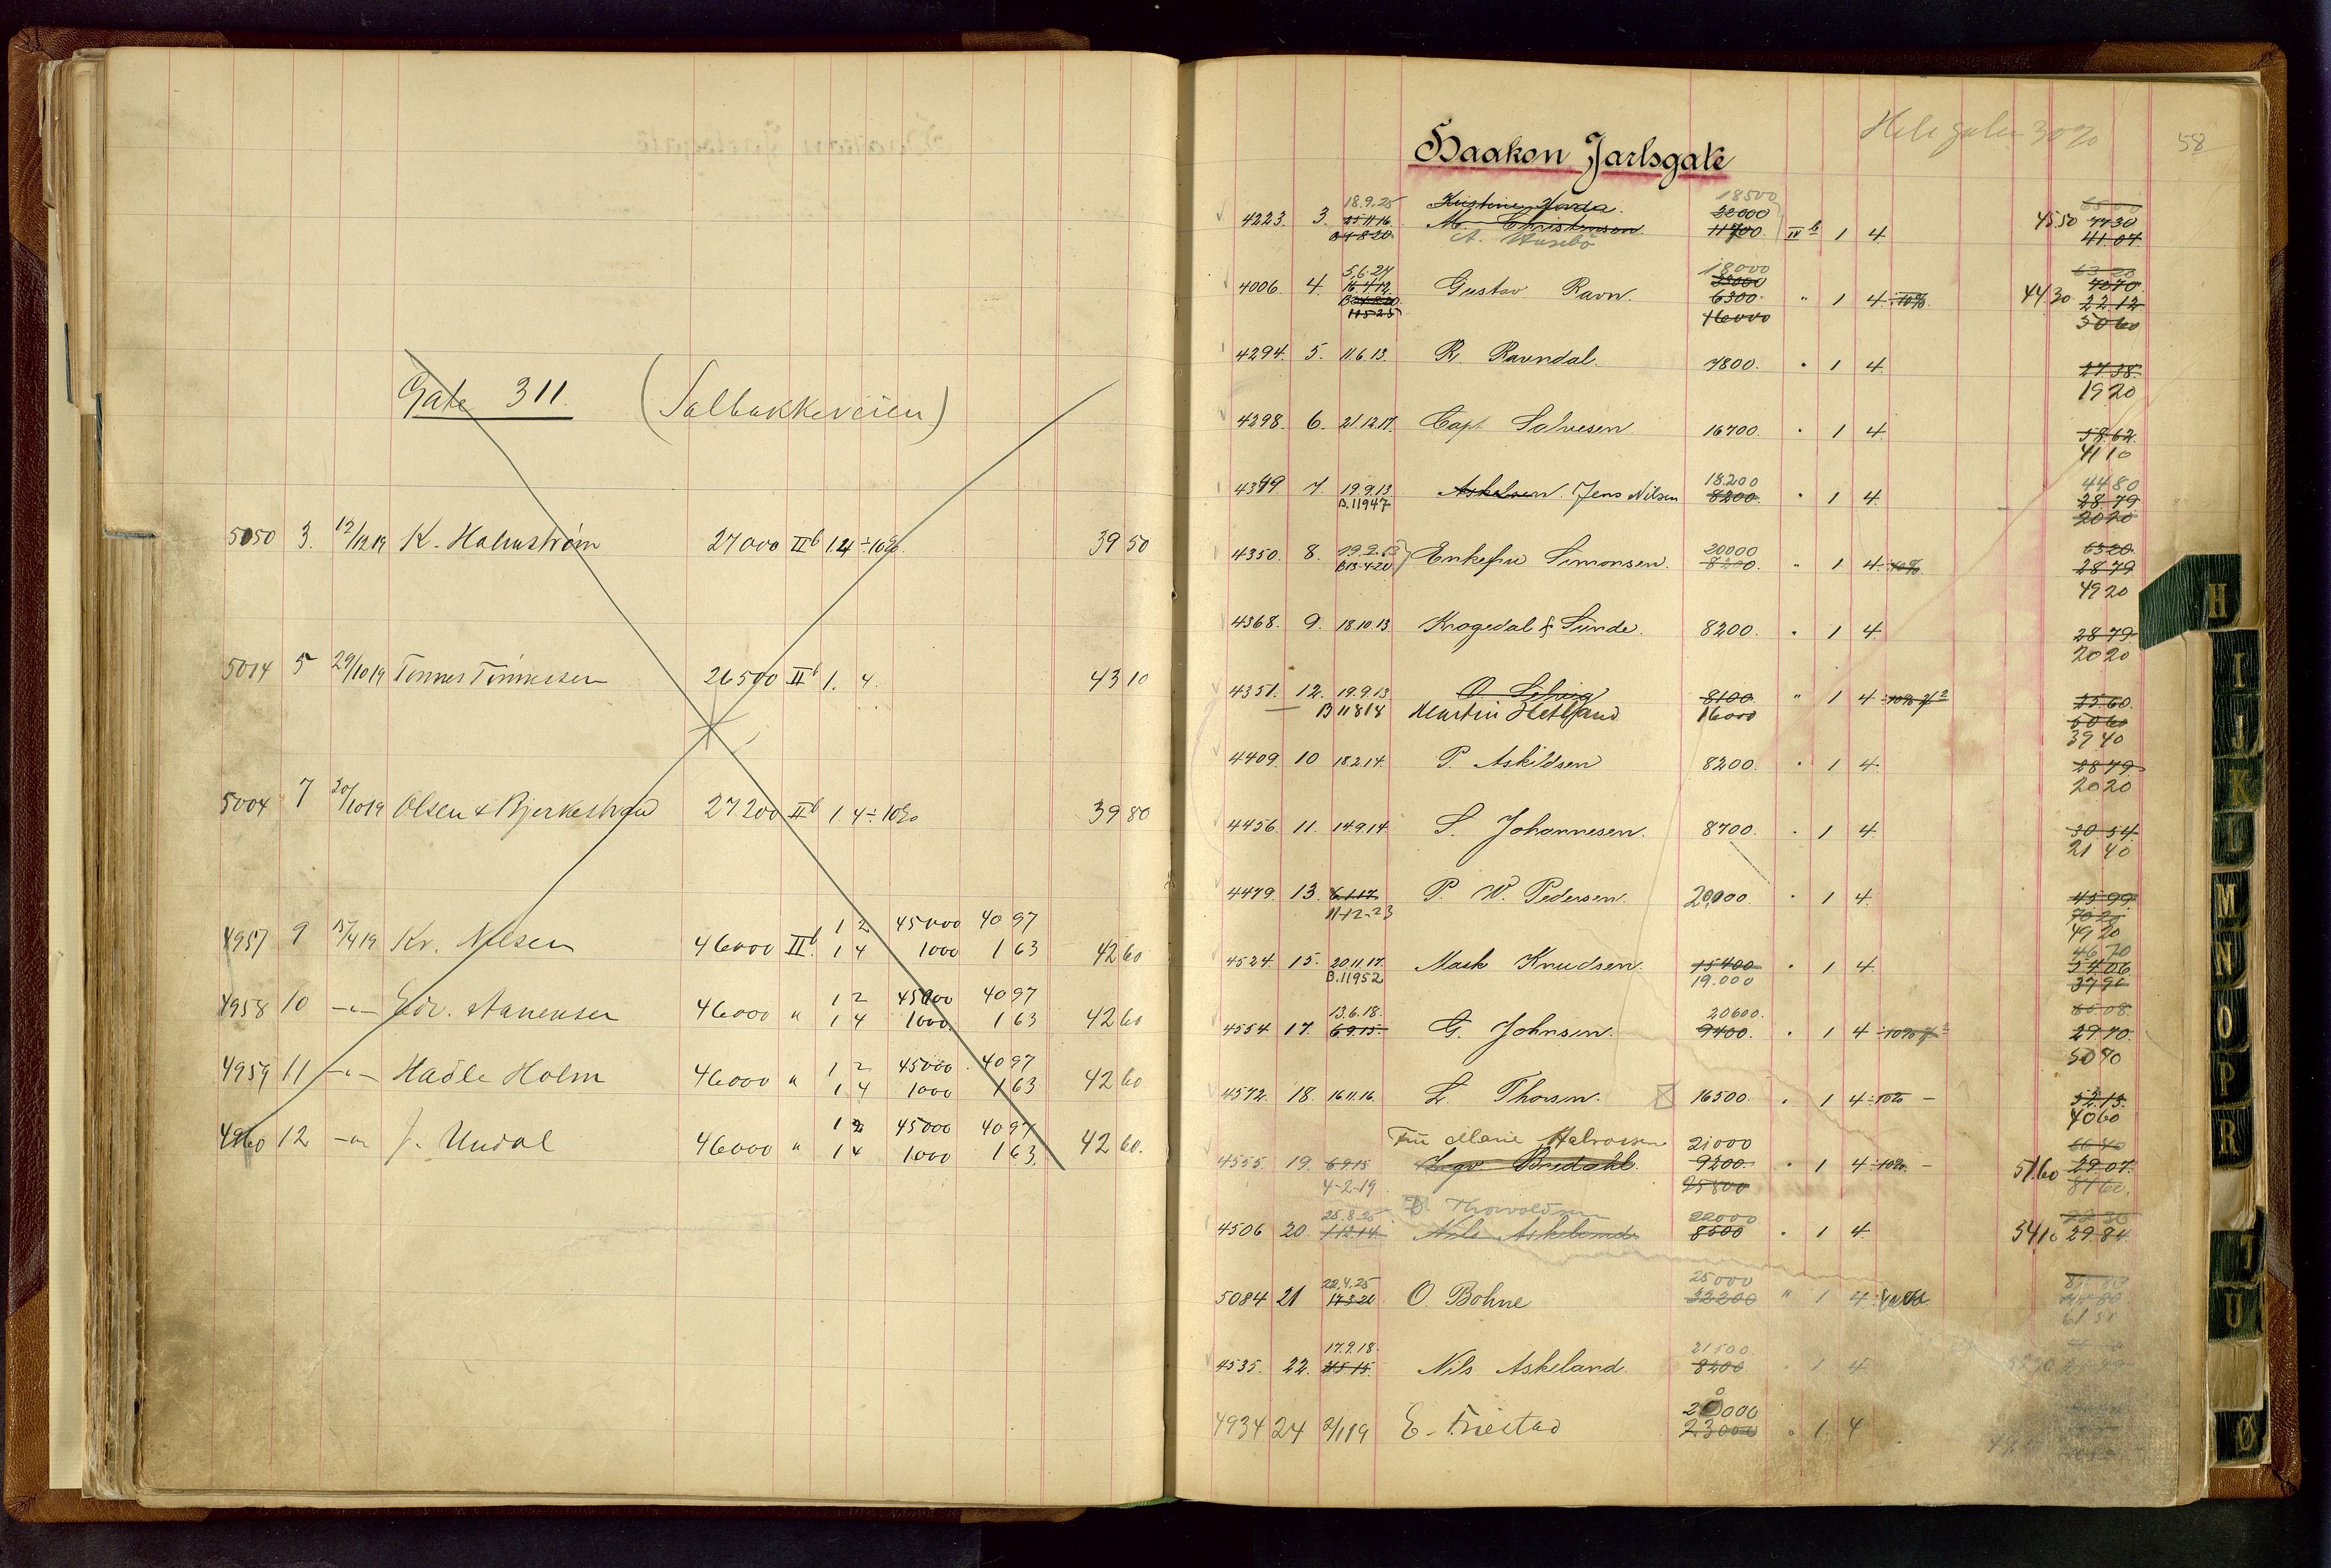 Gate 311. (Solbakkeveien)
5050 3. 12/12 19 K. Holmstrøm 27000 IIb 1. 4 ÷ 10% 39 50
5014 5 29/10 19 Tønnes Tønnessen 26500 IIb 1. 4. 43 10
5004 7 20/10 19 Olsen & Bjerkestrand 27200 IIb 1. 4 ÷ 10% 39 80
1 2 45000 40 97
4957 9 15/4 19 Kr. Nilsen 46000 IIb. 1 4 1000 1 63 42 60
1 2 45000 40 97
4958 10 -"- Edv. Aanensen 46000 " 1 4 1000. 1 63 42 60
1 2 45000 40 97
4959 11 -"- Hadle Holm 46000 " 1 4 1000 1 63 42 60
1 2 45000 40 97
4960 12 -"- J. Undal 46000 " 1 4 1000 1 63. 42 60.
Hele gaten 30%
58
Haakon Jarlsgate
18.9.25 Kristine Hovda. 18500
4223. 3. 25.11.16. M. Christensen. 22000 45.50 77 30
B 4 8 20 A. Husebö 11700. IV b 1 4. 41.07
5.6.27 18000 63 20
4006. 4. 16.4.12. Gustav Ravn. 23000
6300. " 1 4 ÷ 10% 44.30 22.12
16000 50 60
4294. 5. 11.6.13. R. Ravndal. 7800. " 1 4. 27.38.
19 20
4298. 6. 21.12.17. Capt. Salvesen 16700. " 1 4. 58.62.
41 10
18.200 44 80
4349. 7. 19.9.13 Askelsen. Jens Nilsen 8200. " 1 4. 28.79.
B.11947 20 20
20000 63 20
4350. 8. 19.9.13 Enkefru Simonsen. 8200. " 1 4. ÷ 10% 28.79
B13-4-20 49 20
4368. 9. 18.10.13. Krogedal & Sunde. 8200. " 1 4. 28.79.
20 20
4351. 12. 19.9.13 O. Selvig 8100. " 1 4 ÷ 10% 25.60.
B 11818 Martin Hetland 16000 50 60
39 40
4409. 10 18.2.14. P. Askildsen 8200. " 1 4. 28.79.
20 20
4456. 11. 14.9.14. S. Johannesen. 8700. " 1 4. 30.54.
21 40
4479. 13. 6.1.17. P. W. Pedersen. 20,000. " 1 4. 45.99
11-12-23 70 20
49 20
46 70
4524. 15. 20.11.17. Mask Knudsen. 15400. " 1 4. 54.06
B.11952 19.000 37 90
13.6.18. 20600. 65.08.
4554. 17. 6.9.15. G. Johnsen. 9400. " 1 4 ÷ 10% 29.70.
50 70
4572. 18. 16.11.16. L. Thorsen. 16500. " 1 4 ÷ 10% - 52.13.
40 60
Fru Marie Halvorsen 21000 66 40
4555. 19. 6.9.15 Ingv. Bredahl. 9200. " 1 4 ÷ 10%. - 51.60 29.07.
4-2-19. 25800 81 60.
25.8.25 Thorvoldsen 22000
4506 20. 1.12.14. Nils Askeland 8500 " 1 4. 54 10 29.84
22.4.25 25000
5084 21 17 3 20 O. Bohne 32200 " 1 4 ÷ 10% 61 50
17.9.18. 21500.
4535. 22. 21.5.15. Nils Askeland. 8200 " 1 4
20000
4934 24 2/1 19 E. Friestad 23000 " 1 4
H
I
J
K
L
M
N
O
P
R
T
U
Ø